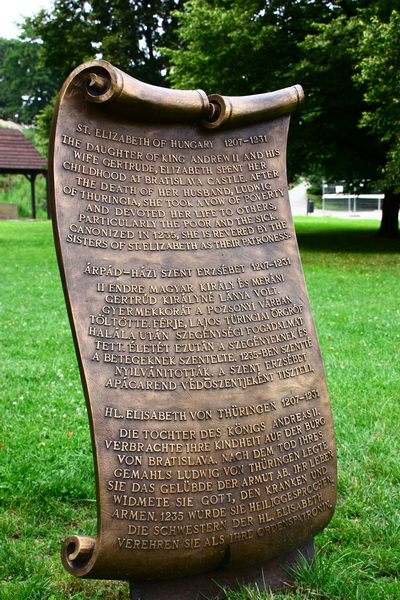 ST. ELIZABETH OF HUNGARY 1207-1231
THE DAUGHTER OF KING ANDREW II AND HIS
WIFE GERTRUDE, ELIZABETH SPENT HER
CHILDHOOD AT BRATISLAVA CASTLE. AFTER
THE DEATH OF HER HUSBAND, LUDWIG
OF THURINGIA, SHE TOOK A VOW OF POVERTY
AND DEVOTED HER LIFE TO OTHERS,
PARTICULARLY THE POOR AND THE SICK.
CANONIZED IN 1235, SHE IS REVERED BY THE
SISTERS OF ST. ELIZABETH AS THEIR PATRONESS.
ÁRPÁD-HÁZI SZENT ERZSÉBET 1207-1231
II ENDRE MAGYAR KIRÁLY ÉS MERÁNI
GERTRÚD KIRÁLYNÉ LÁNYA VOLT.
GYERMEKKORÁT A POZSONYI VÁRBAN
TÖLTÖTTE. FÉRJE, LAJOS TÜRINGIAI ŐRGRÓF
HALÁLA UTÁN SZEGÉNYSÉGI FOGADALMAT
TETT. ÉLETÉT EZUTÁN A SZEGÉNYEKNEK ÉS
A BETEGEKNEK SZENTELTE. 1235-BEN SZENTTÉ
NYILVÁNÍTOTTÁK. A SZENT ERZSÉBET
APÁCAREND VÉDŐSZENTJEKÉNT TISZTELI.
HL. ELISABETH VON THÜRINGEN 1207-1231
DIE TOCHTER DES KÖNIGS ANDREAS II.
VERBRACHTE IHRE KINDHEIT AUF DER BURG
VON BRATISLAVA. NACH DEM TOD IHRES
GEMAHLS LUDWIG VON THÜRINGEN LEGTE
SIE DAS GELÜBDE DER ARMUT AB. IHR LEBEN
WIDMETE SIE GOTT, DEN KRANKEN UND
ARMEN. 1235 WURDE SIE HEILIGGESPROCHEN.
DIE SCHWESTERN DER HL. ELISABETH
VEREHREN SIE ALS IHRE ORDENSPATRONIN.